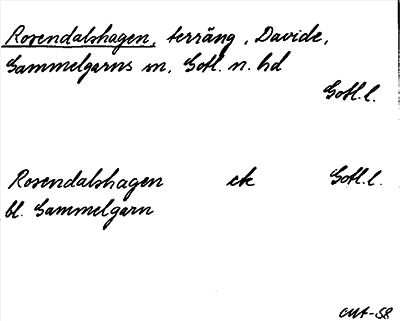 Rosendalshagen, terräng, Davide,
Gammelgarns sn, Gotl. n. hd
Gotl.l.
Rosendalshagen ek Gotl.l.
bl. Gammelgarn